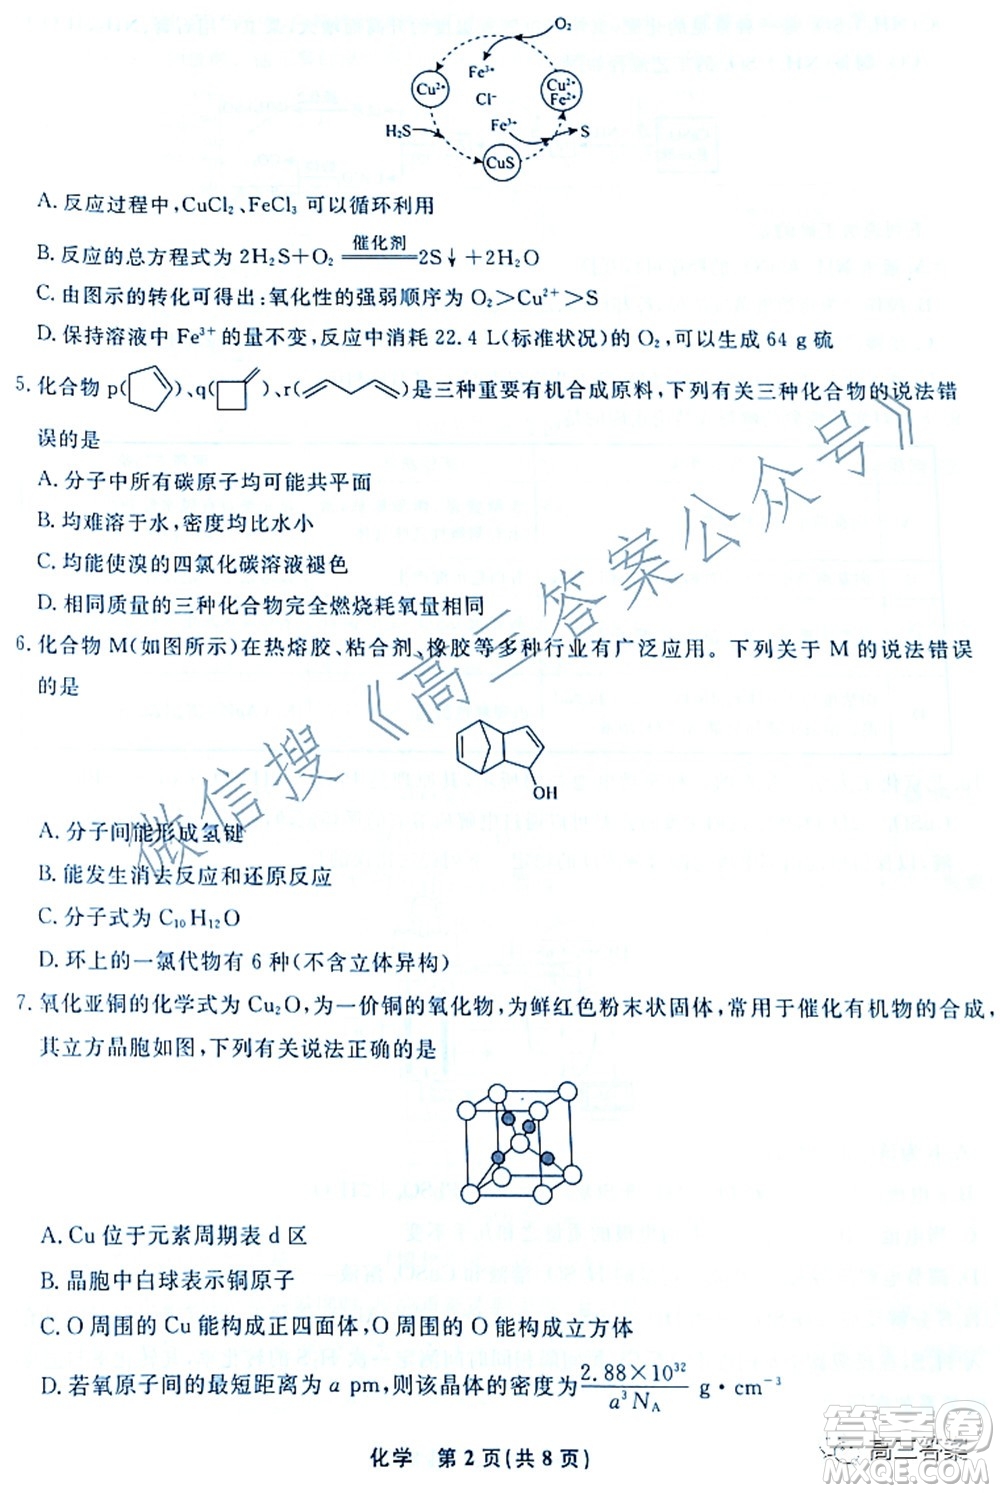 O₂
Fe³⁺
Cu²⁺
Cl⁻
Cu²⁺
Fe²⁺
Fe³⁺
H₂S
S
CuS
A. 反应过程中,CuCl₂、FeCl₃ 可以循环利用
B. 反应的总方程式为 2H₂S+O₂ 催化剂 2S↓+2H₂O
C. 由图示的转化可得出:氧化性的强弱顺序为 O₂>Cu²⁺>S
D. 保持溶液中 Fe³⁺ 的量不变,反应中消耗 22.4 L(标准状况)的 O₂,可以生成 64 g 硫
5. 化合物 p( )、q( )、r( )是三种重要有机合成原料,下列有关三种化合物的说法错
误的是
A. 分子中所有碳原子均可能共平面
B. 均难溶于水,密度均比水小
C. 均能使溴的四氯化碳溶液褪色
D. 相同质量的三种化合物完全燃烧耗氧量相同
6. 化合物 M(如图所示)在热熔胶、粘合剂、橡胶等多种行业有广泛应用。下列关于 M 的说法错误
的是
OH
A. 分子间能形成氢键
B. 能发生消去反应和还原反应
C. 分子式为 C₁₀H₁₂O
D. 环上的一氯代物有 6 种(不含立体异构)
7. 氧化亚铜的化学式为 Cu₂O,为一价铜的氧化物,为鲜红色粉末状固体,常用于催化有机物的合成,
其立方晶胞如图,下列有关说法正确的是
A. Cu 位于元素周期表 d 区
B. 晶胞中白球表示铜原子
C. O 周围的 Cu 能构成正四面体,O 周围的 O 能构成立方体
D. 若氧原子间的最短距离为 a pm,则该晶体的密度为 2.88×10³²/a³N_A g·cm⁻³
化学 第 2 页(共 8 页)
微信搜《高三答案公众号》
高三答案
答案圈
MXQE.COM